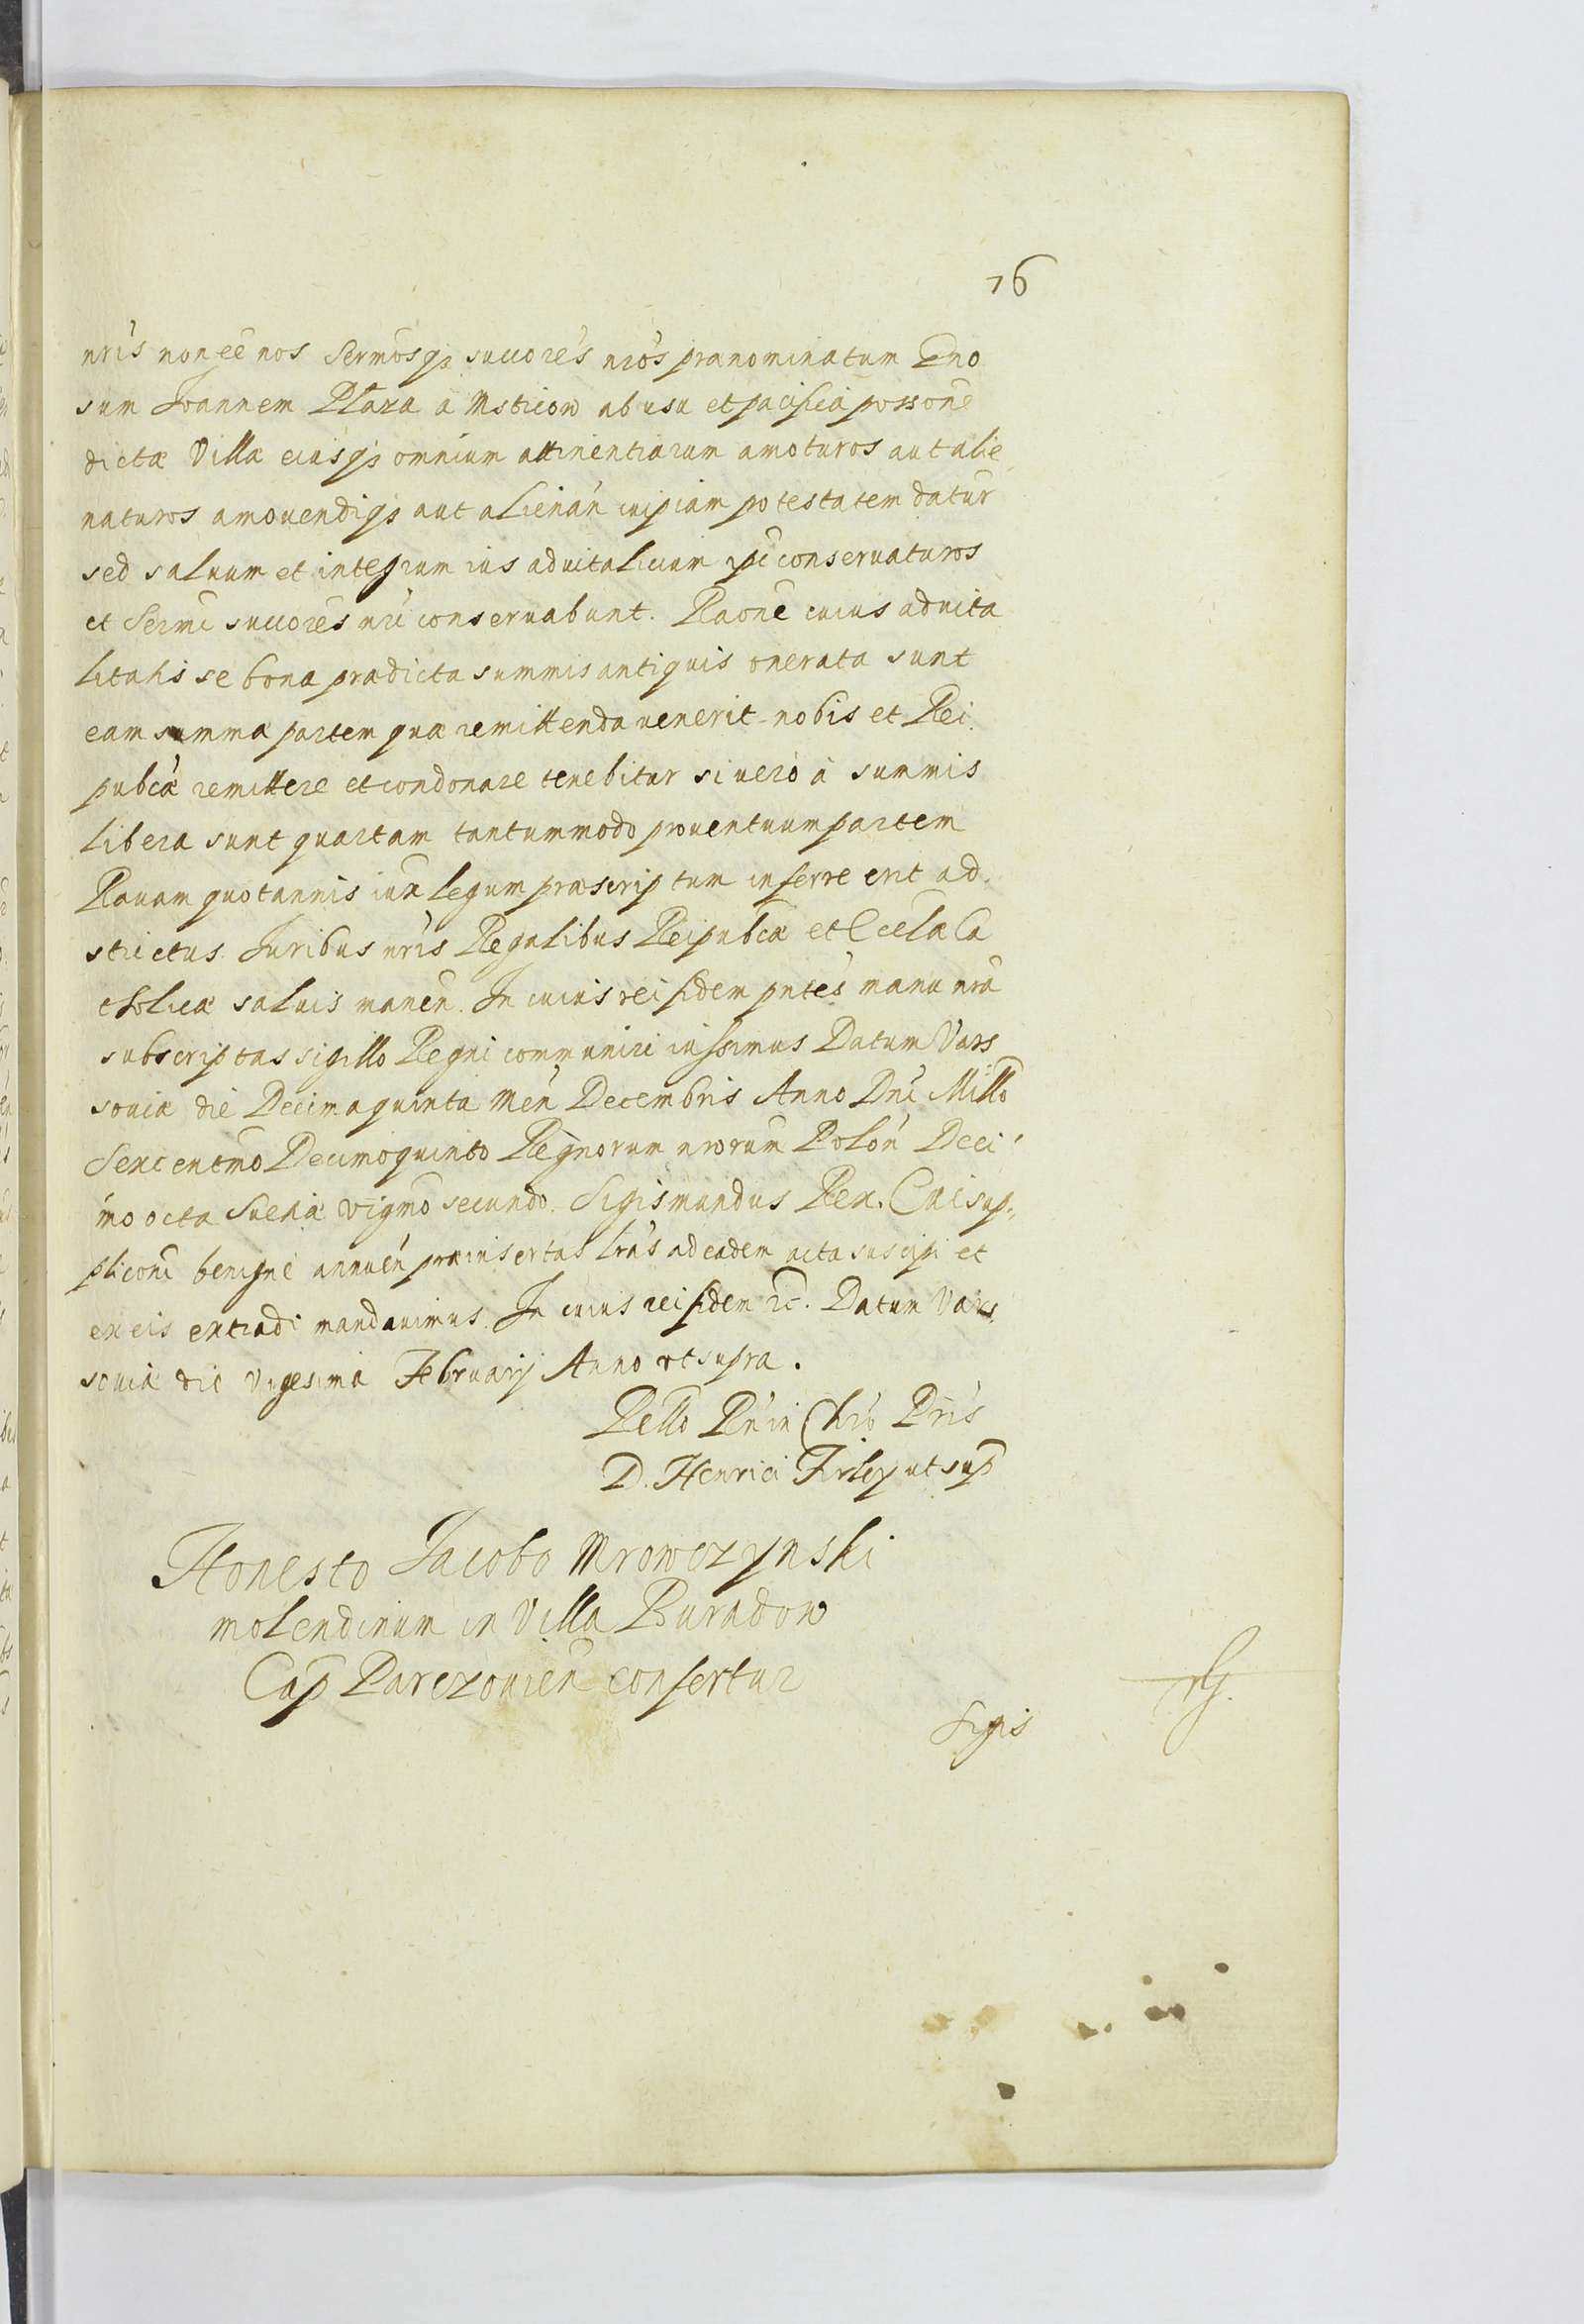 76
nris non eē nos Sermosqz succores nros prænominatum Gno
sum Joannem Płaza à Msticow ab usu et pacifica possone
dictæ Villæ eiusqz omnium attinentiarum amoturos aut alie
naturos amouendiqz aut alienan cuipiam potestatem datur
sed saluum et integrum ius aduitalicium ipi conseruaturos
et Sermi succores nri conseruabunt. Raone cuius aduita
litatis se bona prædicta summis antiquis onerata sunt
eam summæ partem quæ remittenda uenerit nobis et Rei
pubcæ remittere et condonare tenebitur si uero à summis
libera sunt quartam tantummodo prouentuum partem
Rauam quotannis iux legum præscriptum inferre erit ad
strictus. Juribus nris Regalibus Reipubcæ et Ecclæ Ca
tholicæ saluis manen. In cuius rei fidem pntes manu nra
subscriptas sigillo Regni communiri iussimus Datum Vars
souiæ die Decima quinta Men Decembris Anno Dni Millo
Sexcentmo Decimoquinto Regnorum nrorum Polon Deci
mo octa Sueciæ vigmo secundo. Sigismundus Rex. Cui sup
pliconi benigne annuen præinsertas lras ad eadem acta suscipi et
ex eis extradi mandauimus. In cuius rei fidem etc. Datum Vars
souiæ die Vigesima Februarij Anno ut supra.
Rello Rn in Chro Pris
D. Henrici Firley ut sup
Honesto Jacobo Mrowczynski
molendinum in Villa Buradow
Cap Parczouien confertur
Sigis